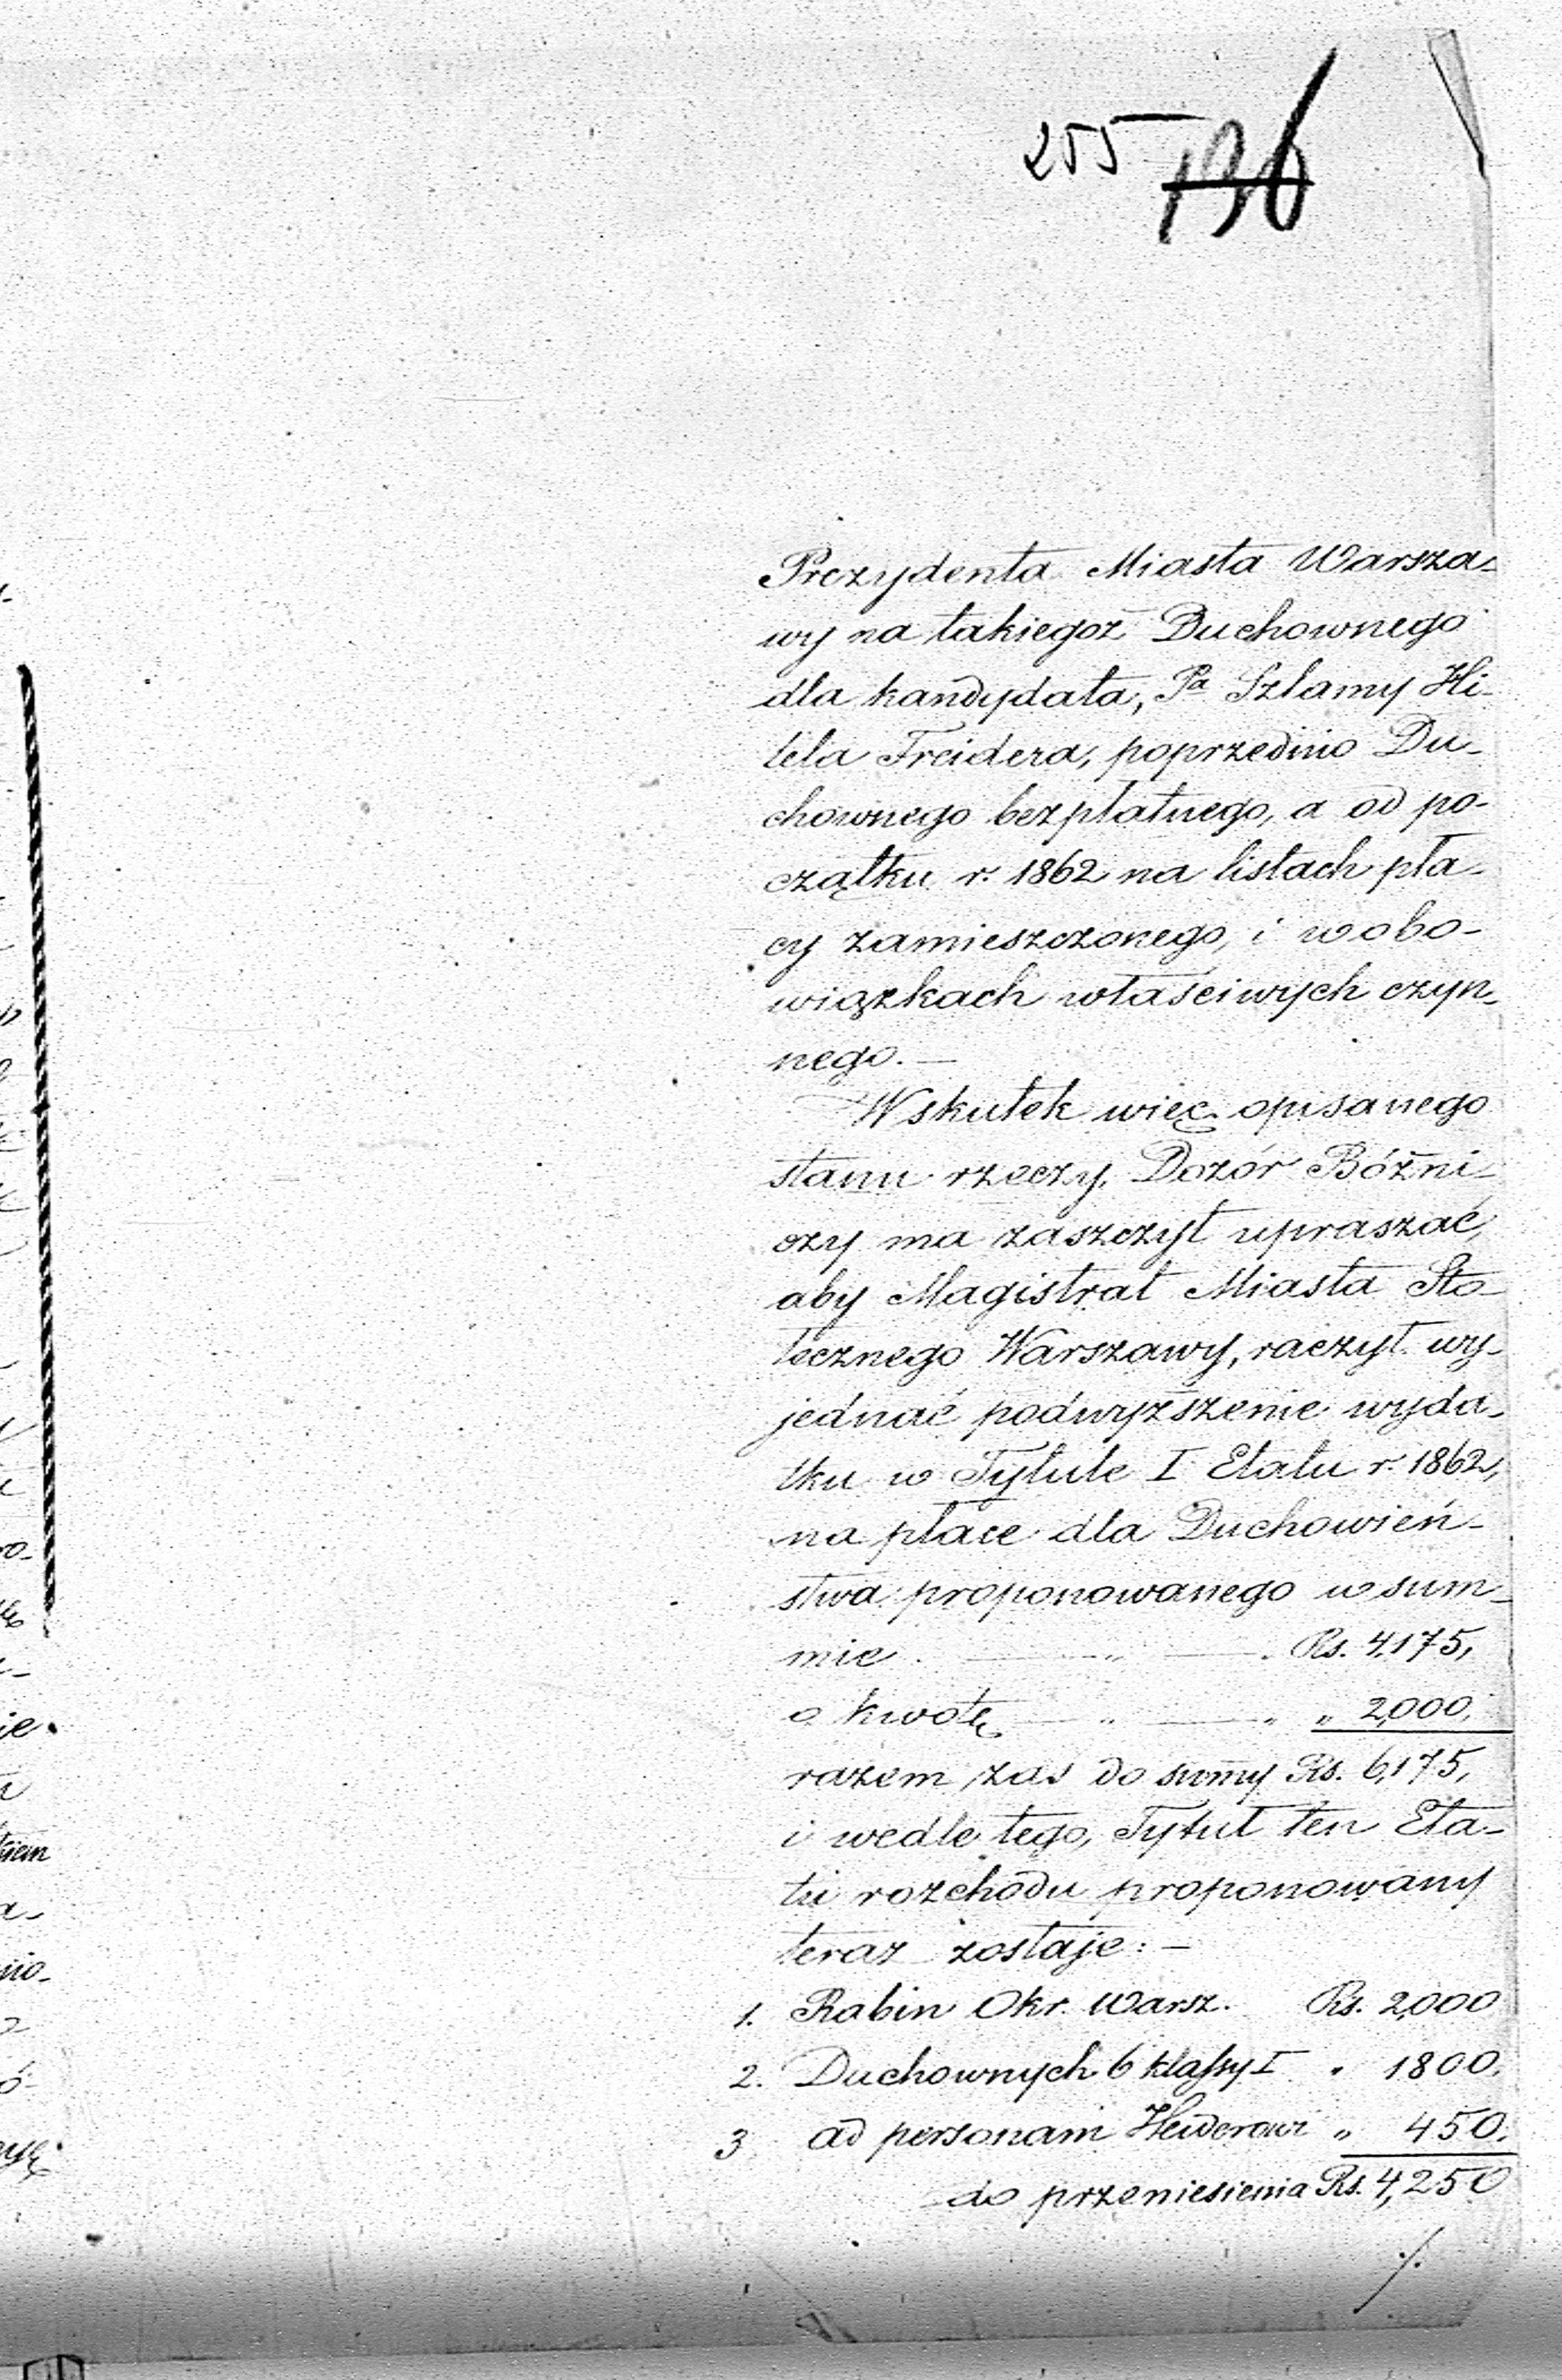 255 196
Prezydenta Miasta Warsza-
wy na takiegoż Duchownego
dla kandydata, Pa Szlamy Hi-
lela Freidera, poprzednio Du-
chownego bezpłatnego, a od po-
czątku r. 1862 na listach pła-
cy zamieszczonego, i w obo-
wiązkach właściwych czyn-
nego. —
Wskutek więc opisanego
stanu rzeczy, Dozór Bóżni-
czy ma zaszczyt upraszać,
aby Magistrat Miasta Sto-
łecznego Warszawy, raczył wy-
jednać podwyższenie wyda-
tku w Tytule I Etatu r. 1862,
na płace dla Duchowień-
stwa proponowanego w sum-
mie . — „ — . Rs. 4,175,
o kwotę — „ — „ „ 2,000,
razem zaś do summy Rs. 6,175,
i wedle tego, Tytuł ten Eta-
tu rozchodu proponowany
teraz zostaje: —
1. Rabin Okr. Warsz. Rs. 2,000
2. Duchownych 6 klassy I „ 1800.
3 ad personam „ 450.
do przeniesienia Rs. 4,250
./.